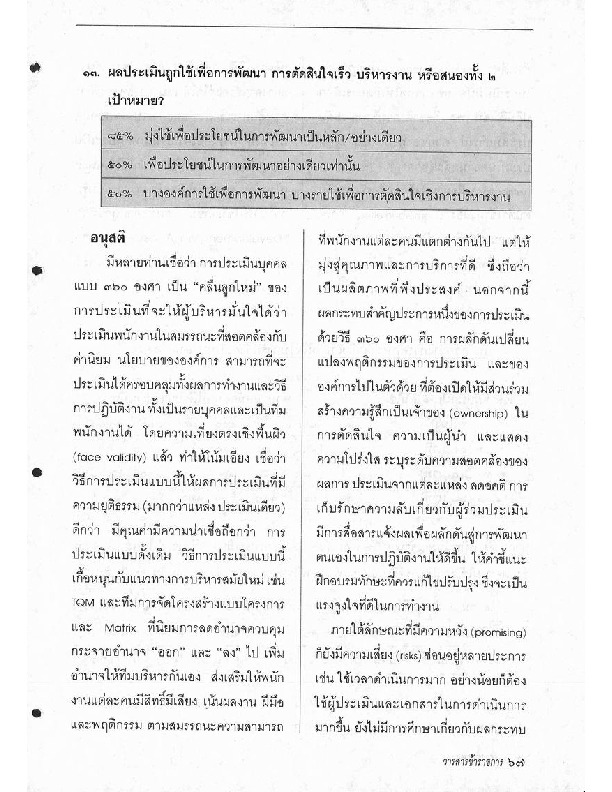 ๑๓. ผลประเมินถูกใช้เพื่อการพัฒนา การตัดสินใจเร็ว บริหารงาน หรือสนองทั้ง ๒
เป้าหมาย?
๘๕% มุ่งใช้เพื่อประโยชน์ในการพัฒนาเป็นหลัก/อย่างเดียว
๕๐% เพื่อประโยชน์ในการพัฒนาอย่างเดียวเท่านั้น
๕๐% บางองค์การใช้เพื่อการพัฒนา บางรายใช้เพื่อการตัดสินใจเชิงการบริหารงาน
อนุสติ
มีหลายท่านเชื่อว่า การประเมินบุคคล
แบบ ๓๖๐ องศา เป็น “คลื่นลูกใหม่” ของ
การประเมินที่จะให้ผู้บริหารมั่นใจได้ว่า
ประเมินพนักงานในสมรรถนะที่สอดคล้องกับ
ค่านิยม นโยบายขององค์การ สามารถที่จะ
ประเมินได้ครอบคลุมทั้งผลการทำงานและวิธี
การปฏิบัติงาน ทั้งเป็นรายบุคคลและเป็นทีม
พนักงานได้ โดยความเที่ยงตรงเชิงพื้นผิว
(face validity) แล้ว ทำให้โน้มเอียง เชื่อว่า
วิธีการประเมินแบบนี้ให้ผลการประเมินที่มี
ความยุติธรรม (มากกว่าแหล่งประเมินเดียว)
ดีกว่า มีคุณค่ามีความน่าเชื่อถือกว่า การ
ประเมินแบบดั้งเดิม วิธีการประเมินแบบนี้
เกื้อหนุนกับแนวทางการบริหารสมัยใหม่ เช่น
TQM และทีมการจัดโครงสร้างแบบโครงการ
และ Matrix ที่นิยมการลดอำนาจควบคุม
กระจายอำนาจ “ออก” และ “ลง” ไป เพิ่ม
อำนาจให้ทีมบริหารกันเอง ส่งเสริมให้พนัก
งานแต่ละคนมีสิทธิ์มีเสียง เน้นผลงาน ฝีมือ
และพฤติกรรม ตามสมรรถนะความสามารถ
ที่พนักงานแต่ละคนมีแตกต่างกันไป แต่ให้
มุ่งสู่คุณภาพและการบริการที่ดี ซึ่งถือว่า
เป็นผลิตภาพที่พึงประสงค์ นอกจากนี้
ผลกระทบสำคัญประการหนึ่งของการประเมิน
ด้วยวิธี ๓๖๐ องศา คือ การผลักดันเปลี่ยน
แปลงพฤติกรรมของการประเมิน และของ
องค์การไปในตัวด้วย ที่ต้องเปิดให้มีส่วนร่วม
สร้างความรู้สึกเป็นเจ้าของ (ownership) ใน
การตัดสินใจ ความเป็นผู้นำ และแสดง
ความโปร่งใส ระบุระดับความสอดคล้องของ
ผลการ ประเมินจากแต่ละแหล่ง ลดอคติ การ
เก็บรักษาความลับเกี่ยวกับผู้ร่วมประเมิน
มีการสื่อสารแจ้งผลเพื่อผลักดันสู่การพัฒนา
ตนเองในการปฏิบัติงานให้ดีขึ้น ให้คำชี้แนะ
ฝึกอบรมทักษะที่ควรแก้ไขปรับปรุง ซึ่งจะเป็น
แรงจูงใจที่ดีในการทำงาน
ภายใต้ลักษณะที่มีความหวัง (promising)
ก็ยังมีความเสี่ยง (risks) ซ่อนอยู่หลายประการ
เช่น ใช้เวลาดำเนินการมาก อย่างน้อยก็ต้อง
ใช้ผู้ประเมินและเอกสารในการดำเนินการ
มากขึ้น ยังไม่มีการศึกษาเกี่ยวกับผลกระทบ
วารสารข้าราชการ ๖๗